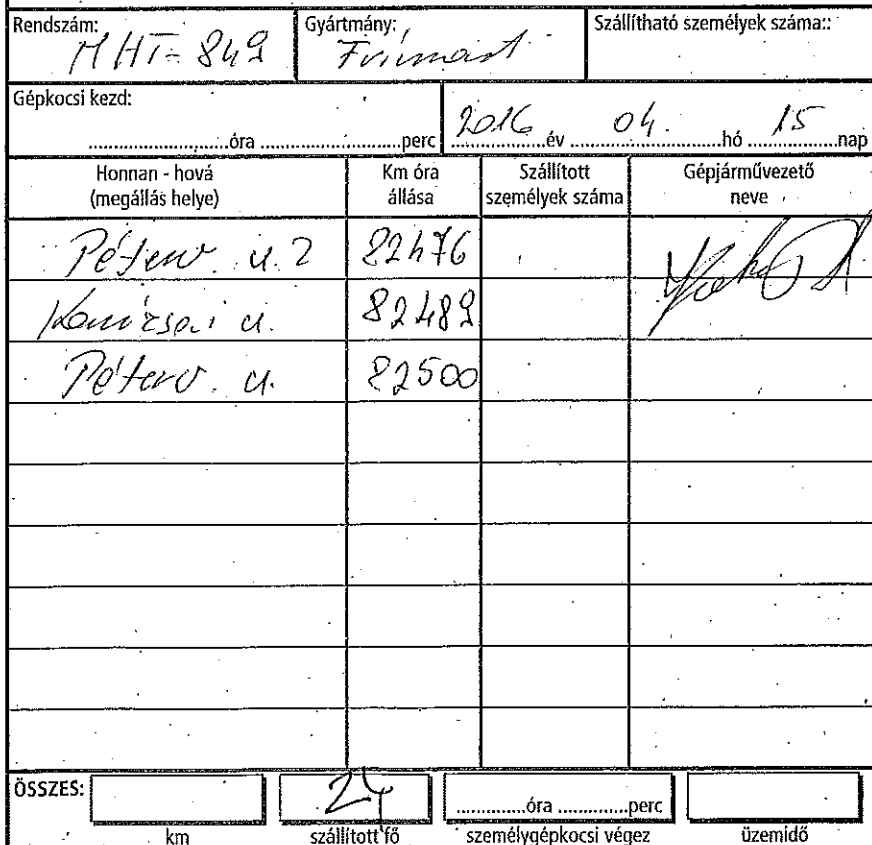 Rendszám: Gyártmány: Szállítható személyek száma::
MHT-849
Gépkocsi kezd:
..........óra ..........perc 2016 év 04. hó 15 nap
Honnan - hová (megállás helye) Km óra állása Szállított személyek száma Gépjárművezető neve
Péterv. u. 2 82476
Kanizsai u. 82489
Péterv. u. 82500
ÖSSZES: 24 ..........óra ..........perc
km szállított fő személygépkocsi végez üzemidő